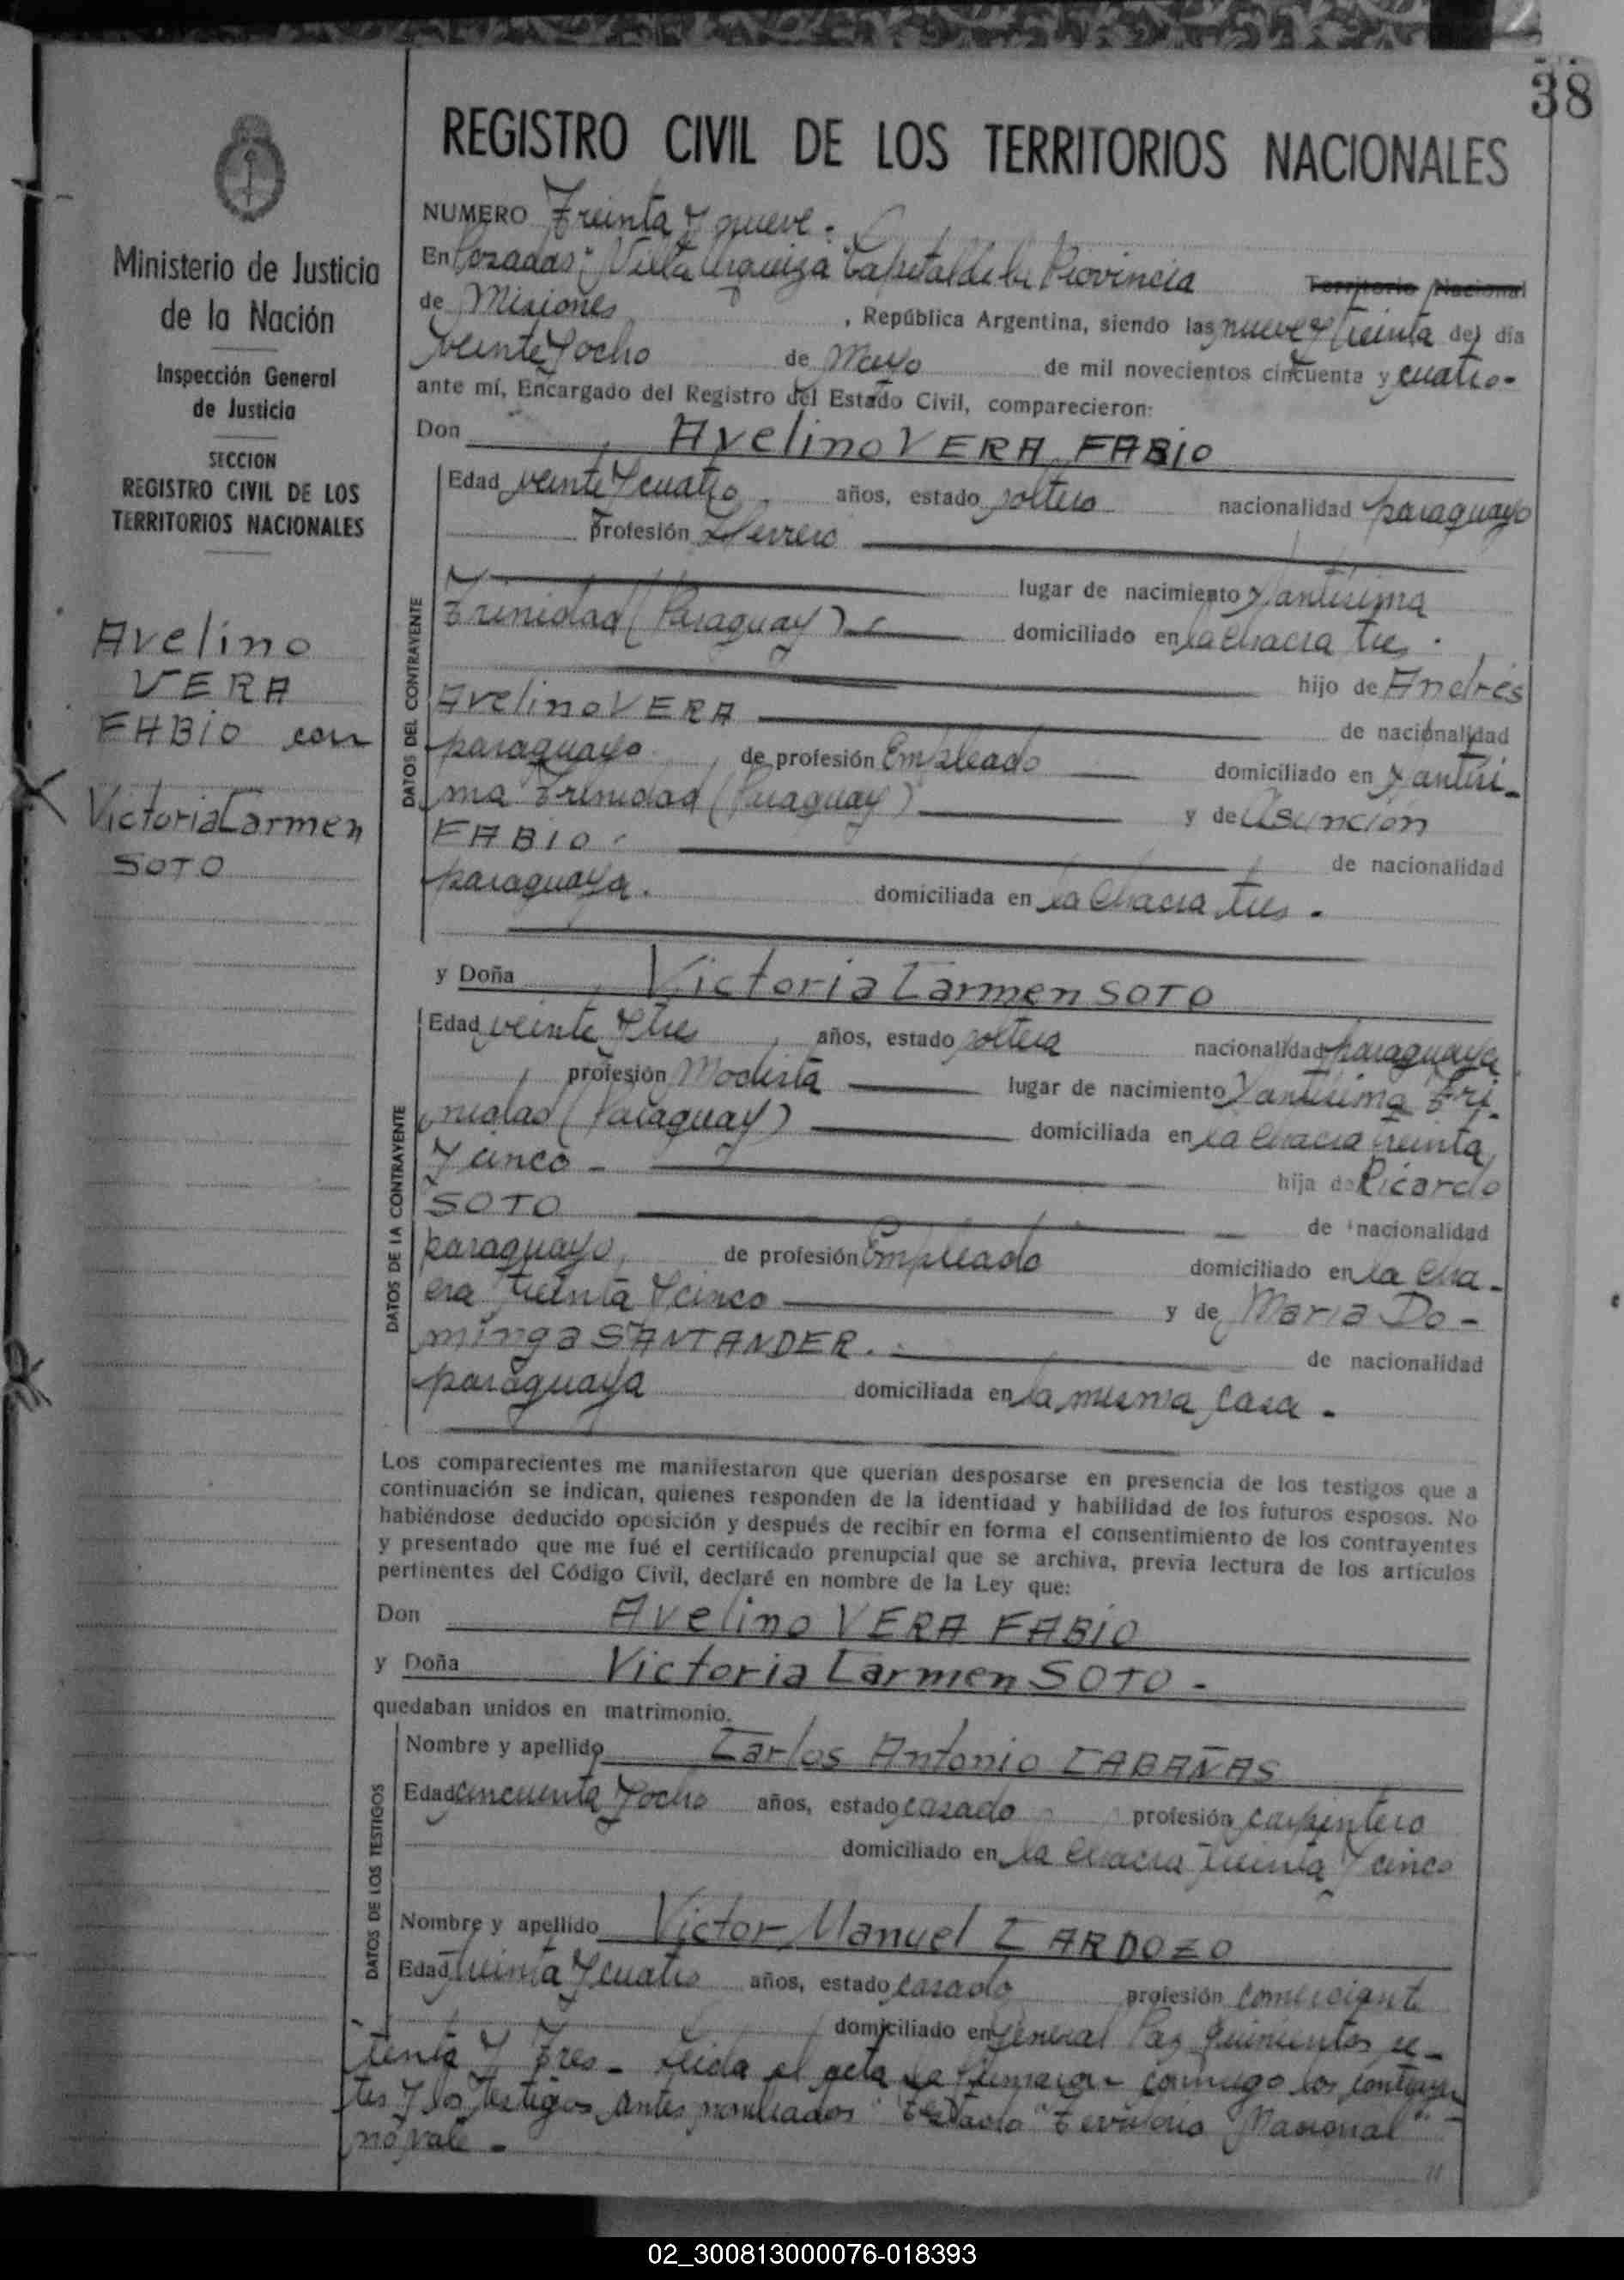 38
REGISTRO CIVIL DE LOS TERRITORIOS NACIONALES
Ministerio de Justicia
de la Nación
Inspección General
de Justicia
SECCION
REGISTRO CIVIL DE LOS
TERRITORIOS NACIONALES
Avelino
VERA
FABIO con
Victoria Carmen
SOTO
NUMERO Treinta y nueve.
En Posadas, Villa Urquiza Capital de la Provincia Territorio Nacional
de Misiones, República Argentina, siendo las nueve y treinta del día
veinte y ocho de Mayo de mil novecientos cincuenta y cuatro-
ante mí, Encargado del Registro del Estado Civil, comparecieron:
Don Avelino VERA FABIO
DATOS DEL CONTRAYENTE
Edad veinte y cuatro años, estado soltero nacionalidad paraguayo
profesión Herrero
lugar de nacimiento Santísima
Trinidad (Paraguay) domiciliado en la Chacra tres.
hijo de Andrés
Avelino VERA de nacionalidad
paraguayo de profesión Empleado domiciliado en Santísi-
ma Trinidad (Paraguay) y de Asunción
FABIO. de nacionalidad
paraguaya. domiciliada en la Chacra tres.
y Doña Victoria Carmen SOTO
DATOS DE LA CONTRAYENTE
Edad veinte y tres años, estado soltera nacionalidad paraguaya
profesión Modista lugar de nacimiento Santísima Tri-
nidad (Paraguay) domiciliada en la Chacra treinta
y cinco - hija de Ricardo
SOTO de nacionalidad
paraguayo, de profesión Empleado domiciliado en la Cha-
cra treinta y cinco y de Maria Do-
minga SANTANDER. de nacionalidad
paraguaya domiciliada en la misma casa.
Los comparecientes me manifestaron que querían desposarse en presencia de los testigos que a
continuación se indican, quienes responden de la identidad y habilidad de los futuros esposos. No
habiéndose deducido oposición y después de recibir en forma el consentimiento de los contrayentes
y presentado que me fué el certificado prenupcial que se archiva, previa lectura de los artículos
pertinentes del Código Civil, declaré en nombre de la Ley que:
Don Avelino VERA FABIO
y Doña Victoria Carmen SOTO -
quedaban unidos en matrimonio.
DATOS DE LOS TESTIGOS
Nombre y apellido Carlos Antonio CABAÑAS
Edad cincuenta y ocho años, estado casado profesión carpintero
domiciliado en la Chacra treinta y cinco
Nombre y apellido Victor Manuel CARDOZO
Edad treinta y cuatro años, estado casado profesión comerciante
domiciliado en General Paz quinientos se-
tenta y tres - Leida el acta la firmaron conmigo los contrayen
tes y los testigos antes nombrados "Testado "Territorio Nacional" -
no vale -
02_300813000076-018393